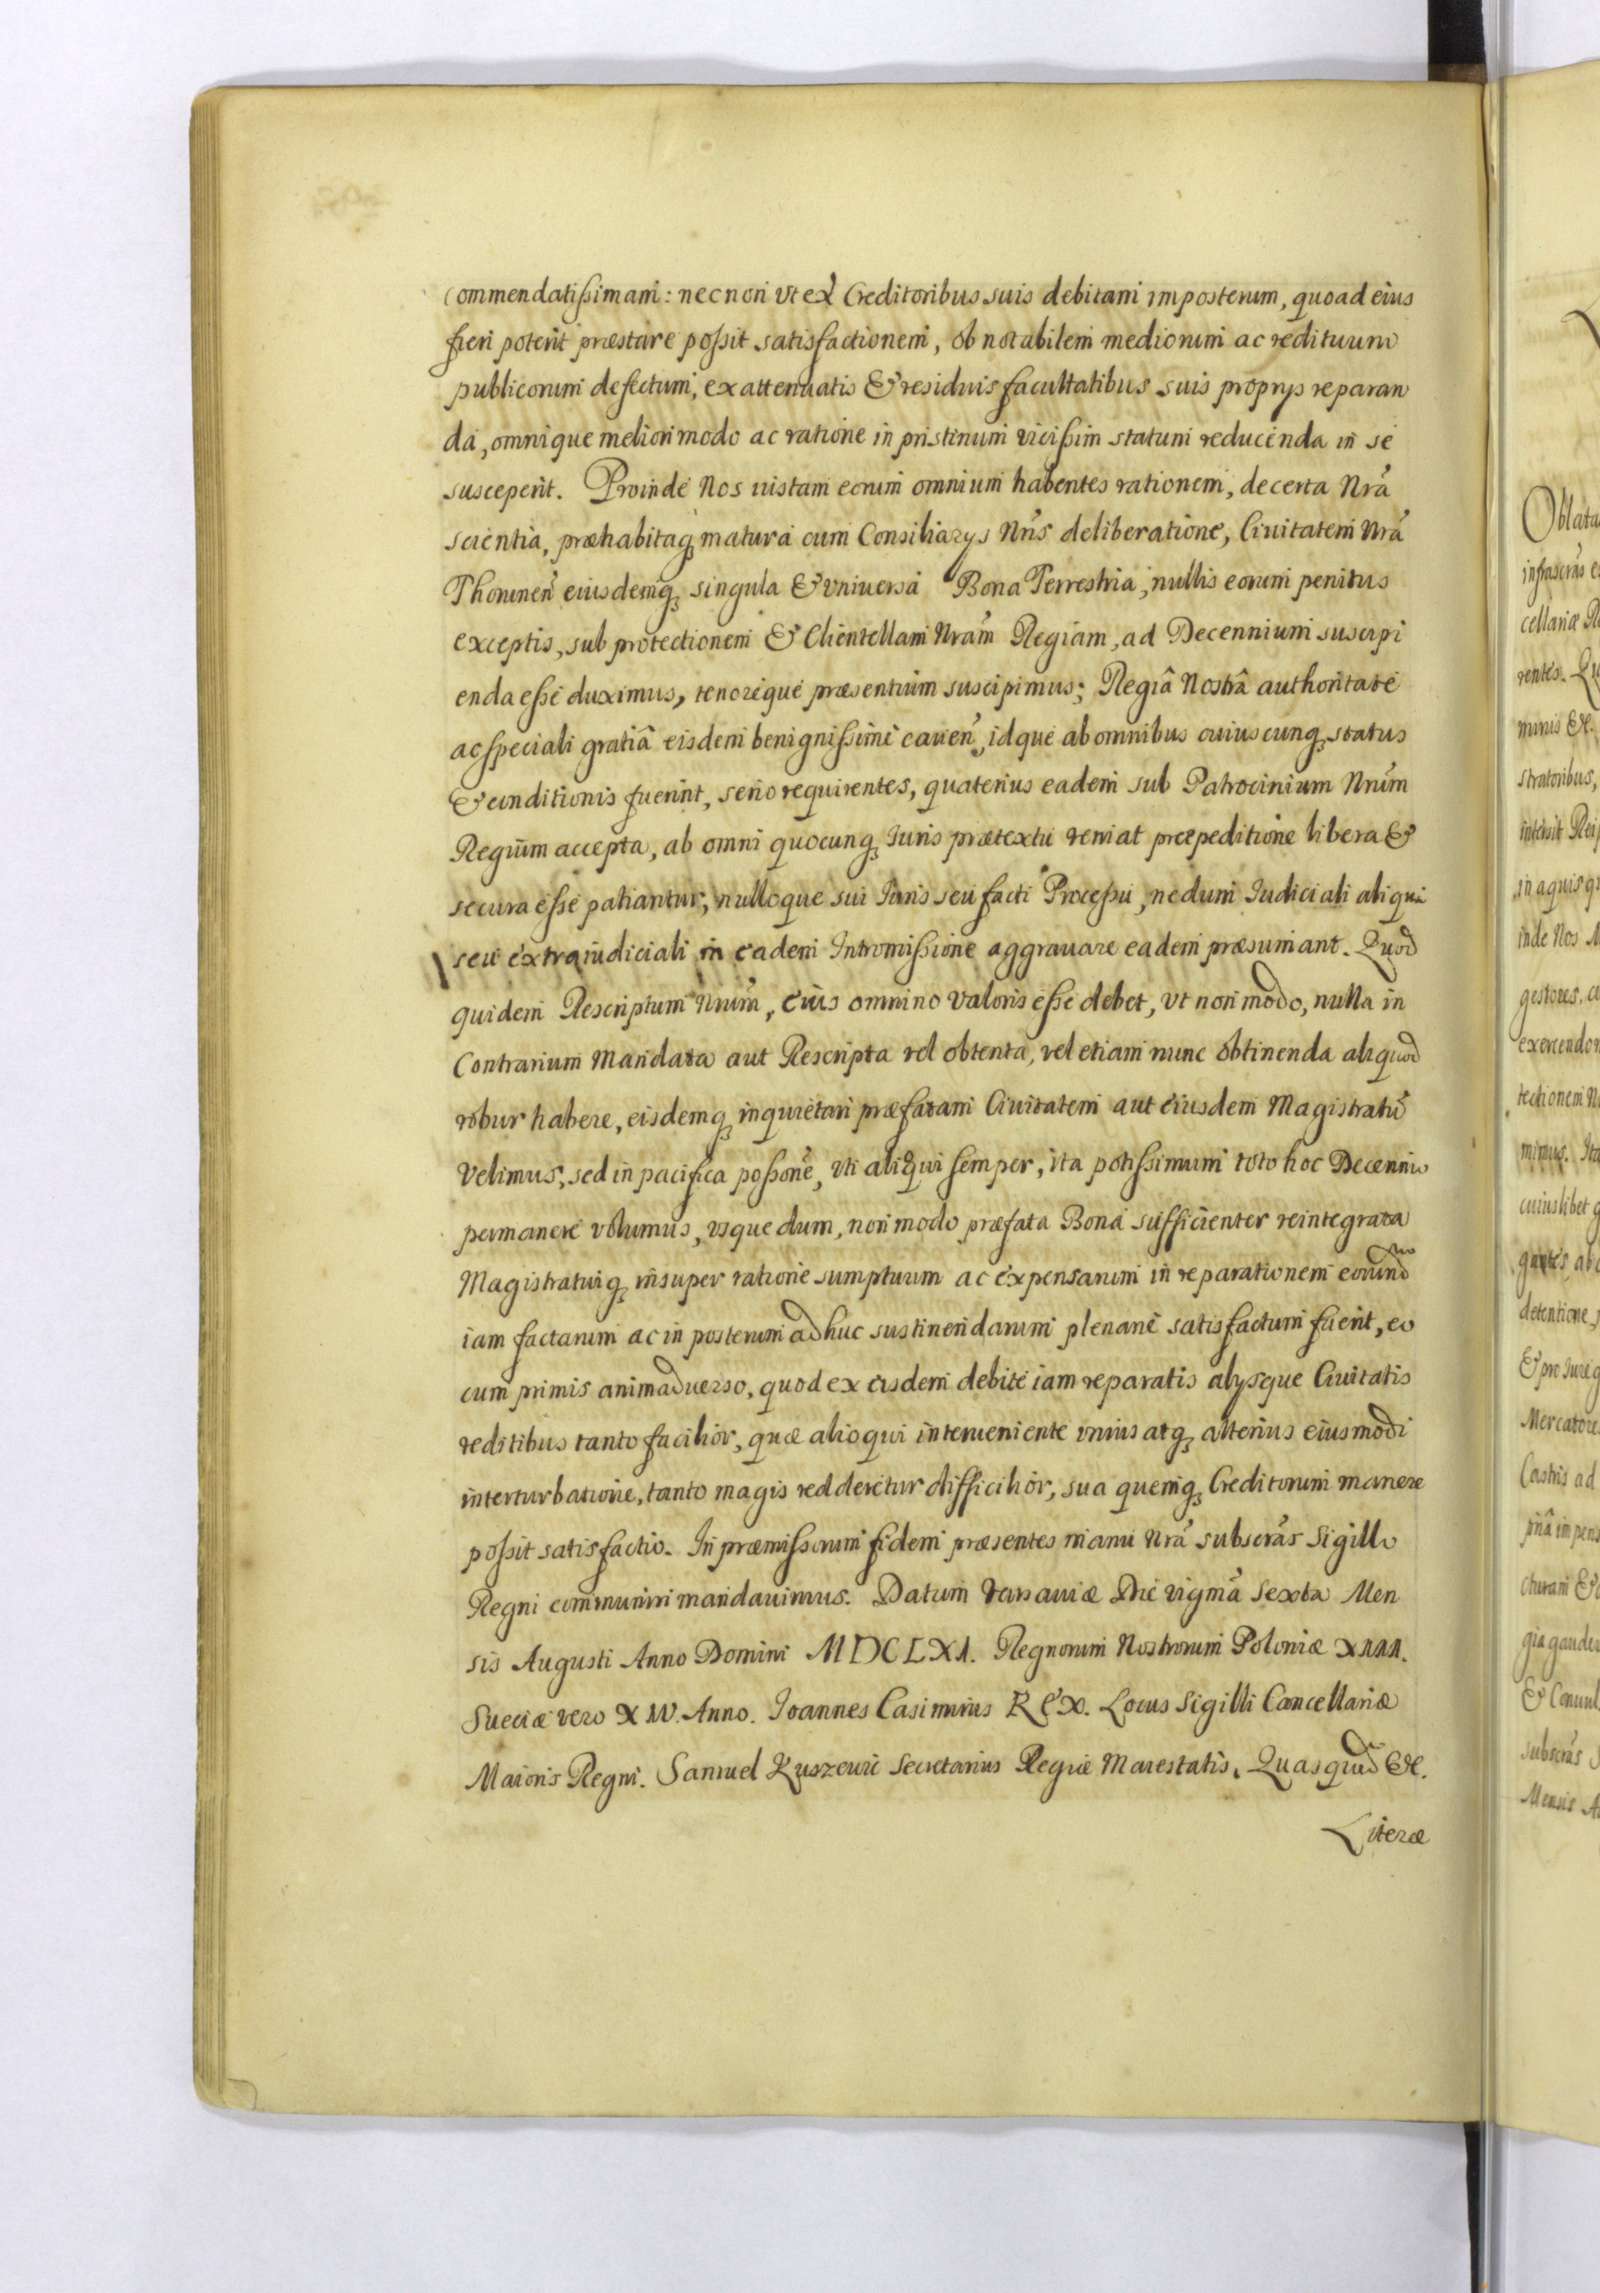 commendatissimam: necnon vt ex Creditoribus suis debitam imposterum, quoad eius
fieri poterit præstare possit satisfactionem, ob notabilem mediorum ac redituum
publicorum defectum, ex attenuatis & residuis facultatibus suis proprys reparan
da, omnique meliori modo ac ratione in pristinum vicissim statum reducenda in se
susceperit. Proinde Nos iustam eorum omnium habentes rationem, de certa Nrã
scientia, præhabitaq; matura cum Consiliarys Nrĩs deliberatione, Ciuitatem Nrã
Thorunen̄ eiusdemq; singula & vniuersa Bona Terrestria, nullis eorum penitus
exceptis, sub protectionem & Clientellam Nrãm Regiam, ad Decennium suscipi
enda esse duximus, tenoreque præsentium suscipimus; Regiâ Nostrâ authoritate
ac speciali gratiâ eisdem benignissime cauen̄, idque ab omnibus cuiuscunq; status
& conditionis fuerint, serio requirentes, quatenus eadem sub Patrocinium Nrũm
Regium accepta, ab omni quocunq; Iuris prætextu veniat præpeditione libera &
secura esse patiantur, nulloque sui Iuris seu facti Processu, nedum Iudiciali aliqua
seu extraiudiciali in eadem Intromissione aggrauare eadem præsumant. Quod
quidem Rescriptum Nrũm, eius omnino valoris esse debet, vt non modo, nulla in
Contrarium Mandata aut Rescripta vel obtenta, vel etiam nunc obtinenda aliquod
robur habere, eisdemq; inquietari præfatam Ciuitatem aut eiusdem Magistratũ
velimus, sed in pacifica possōne, vti aliàqui semper, ita potissimum toto hoc Decennio
permanere volumus, vsque dum, non modo præfata Bona sufficienter reintegrata
Magistratuiq; insuper ratione sumptuum ac expensarum in reparationem eorund
iam factarum ac in posterum adhuc sustinendarum plenarie satisfactum fuerit, eo
cum primis animaduerso, quod ex eisdem debite iam reparatis alysque Ciuitatis
reditibus tanto facilior, quæ alioqui interueniente vnius atq; alterius eiusmodi
interturbatione, tanto magis redderetur difficilior, sua quemq; Creditorum manere
possit satisfactio. In præmissorum fidem præsentes manu Nrã subscrãs Sigillo
Regni communiri mandauimus. Datum Varsauiæ Die vigmã Sexta Men
sis Augusti Anno Domini MDCLXI. Regnorum Nostrorum Poloniæ XIII.
Sueciæ vero XIV. Anno. Ioannes Casimirus REX. Locus Sigilli Cancellariæ
Maioris Regni. Samuel Kuszewic Secretarius Regiæ Maiestatis. Quasquid &c.
Literæ